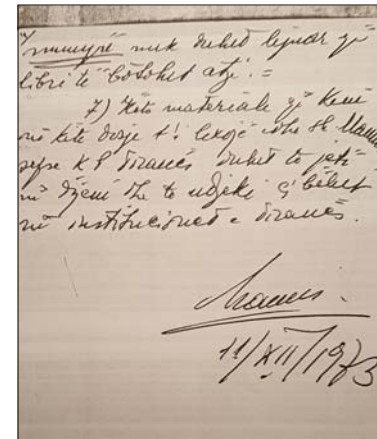 mënyrë nuk duhet lejuar që
libri të botohet atje. =
7) Këto materiale që kemi
në këtë dosje t'i lexojë edhe sh. Manush
sepse K P Tiranës duhet të jetë
në dijeni dhe të ndjeki ç'bëhet
në institucionet e Tiranës.
11/XII/1973